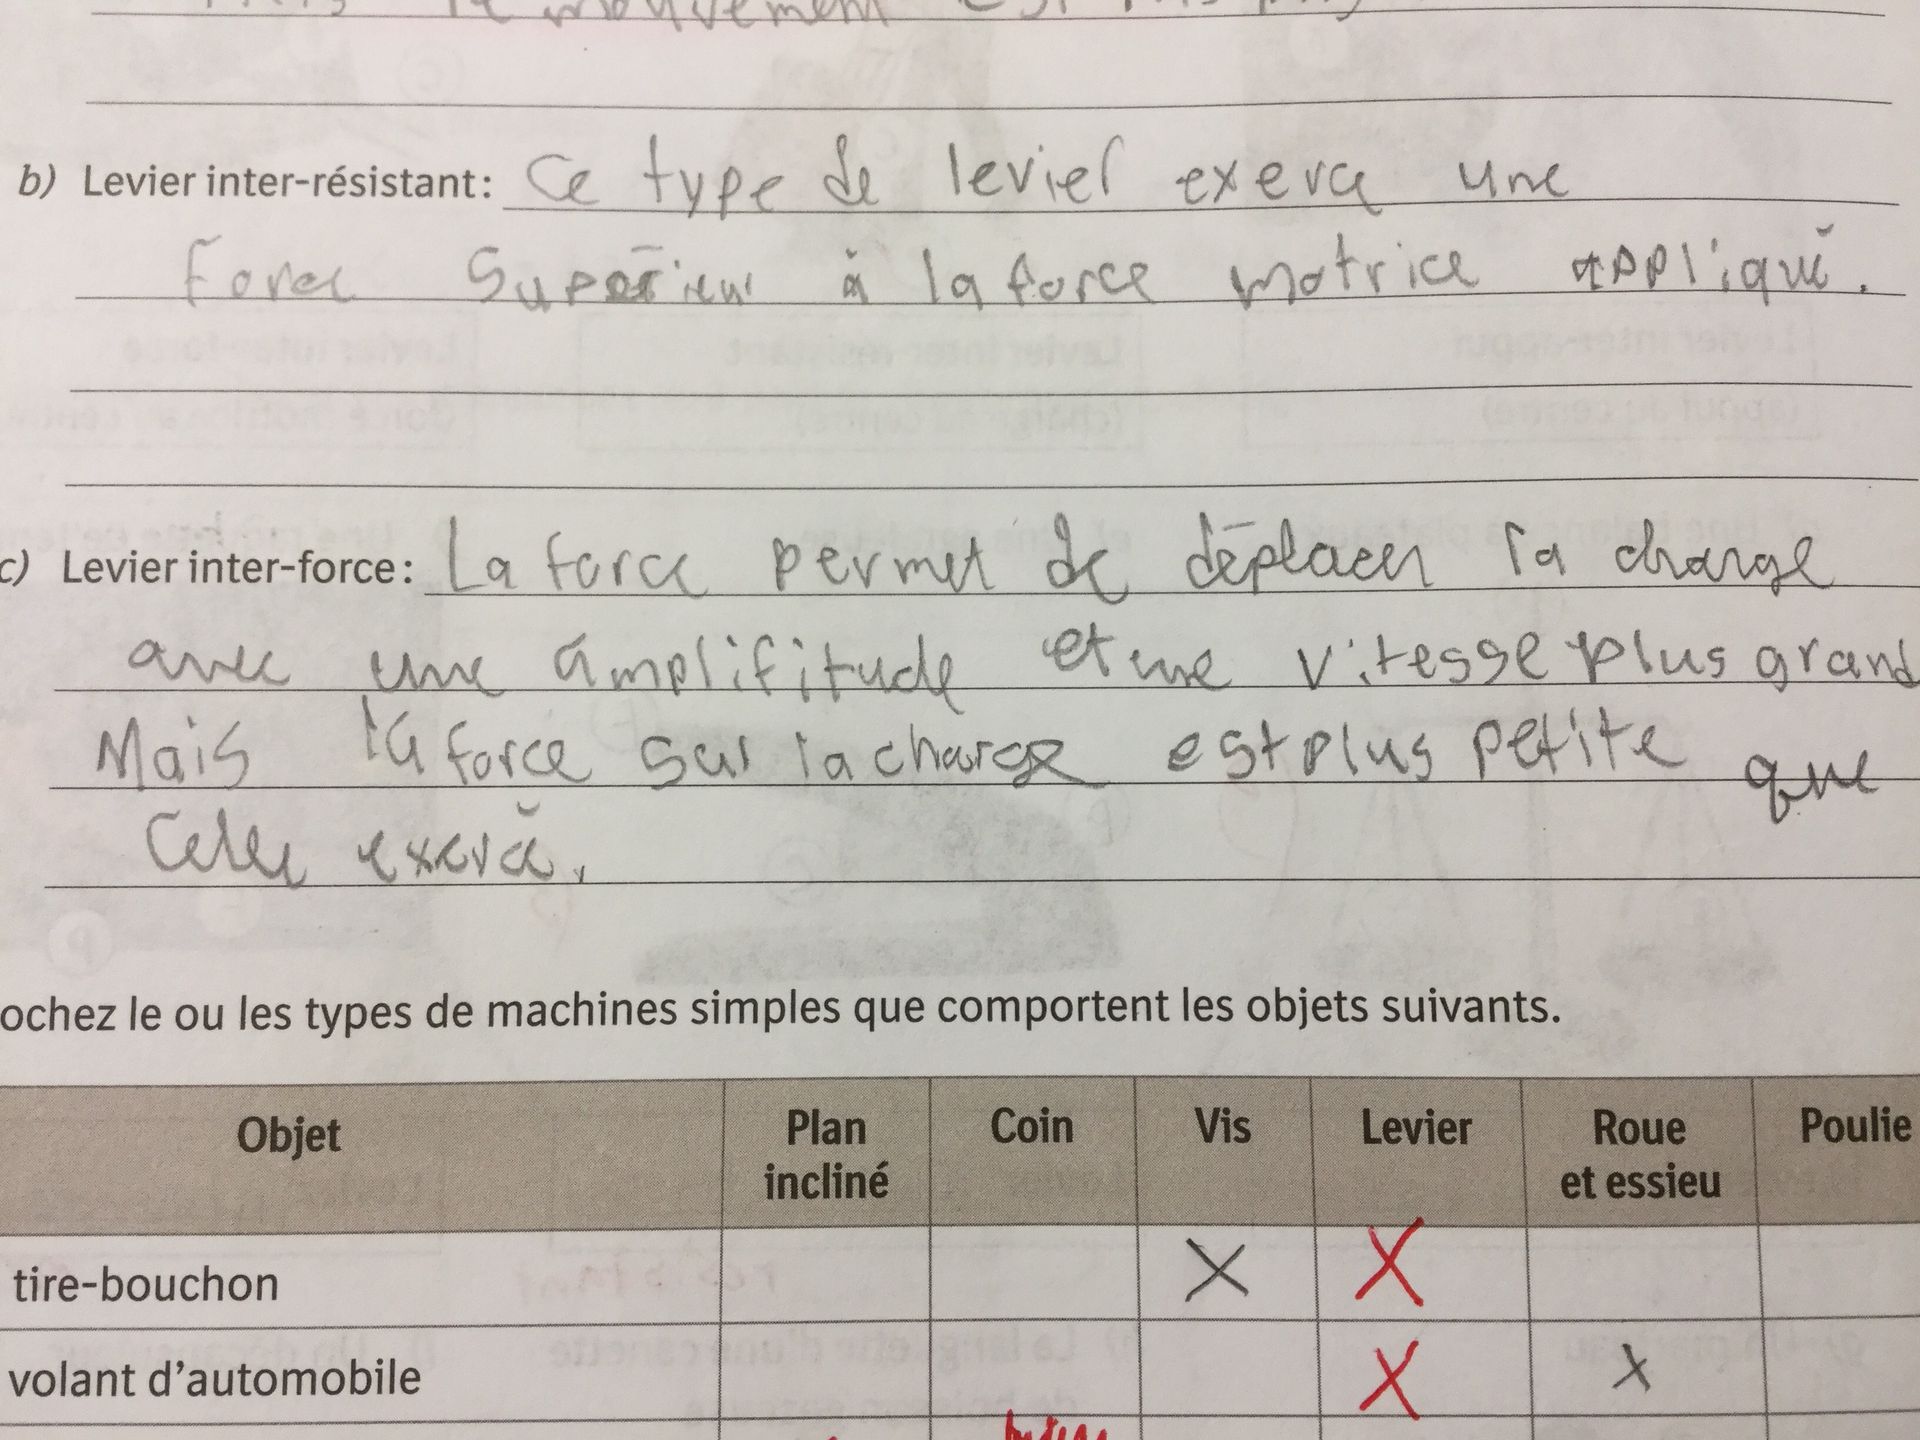 le mouvement est
b) Levier inter-résistant: Ce type de levier exerce une
Force Supérieur à la force motrice appliqué.
c) Levier inter-force: La force permet de déplacer la charge
avec une amplifitude et une vitesse plus grand
Mais la force sur la charge est plus petite que
Celle exercé.
ochez le ou les types de machines simples que comportent les objets suivants.
Objet Plan incliné Coin Vis Levier Roue et essieu Poulie
tire-bouchon X X
volant d'automobile X X